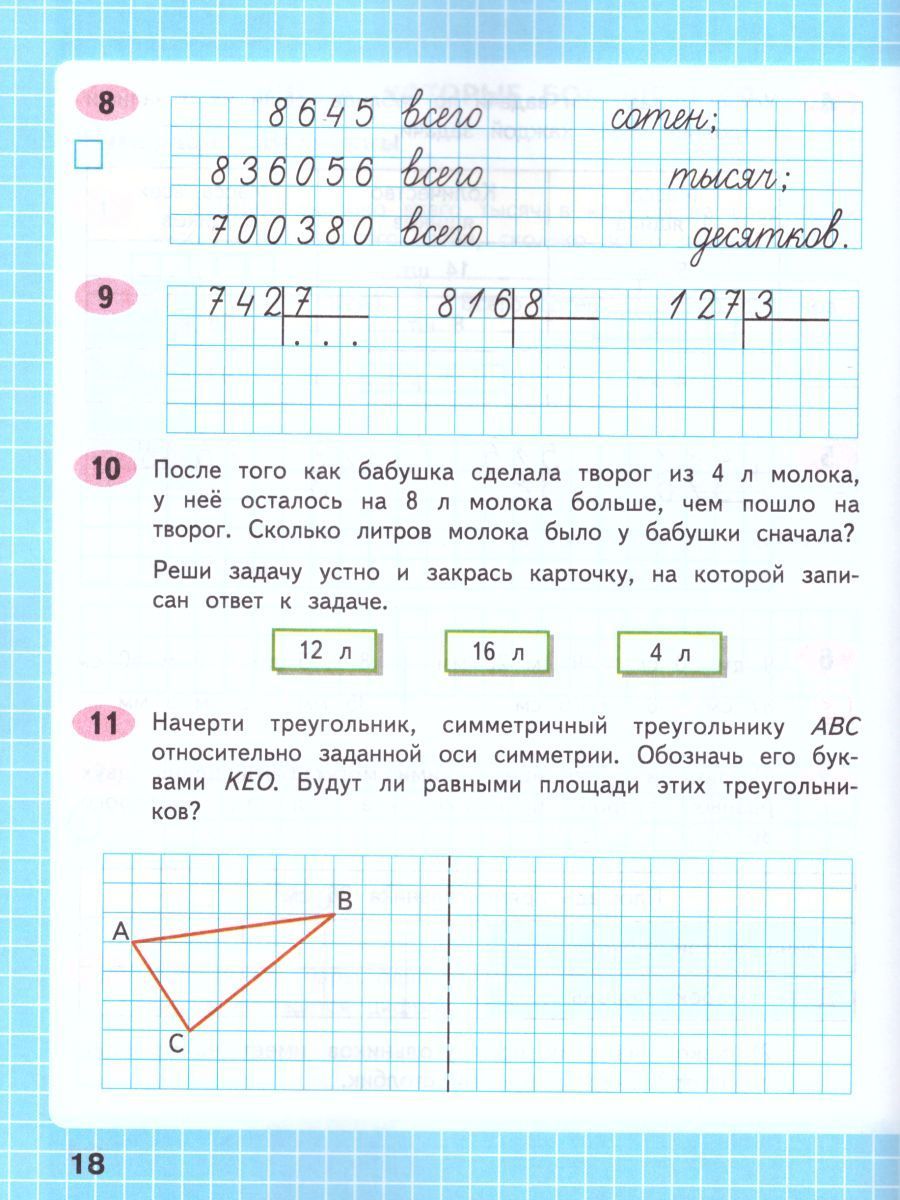 8
8645 всего сотен;
836056 всего тысяч;
700380 всего десятков.
9
742 7 816 8 127 3
. . .
10 После того как бабушка сделала творог из 4 л молока,
у неё осталось на 8 л молока больше, чем пошло на
творог. Сколько литров молока было у бабушки сначала?
Реши задачу устно и закрась карточку, на которой запи-
сан ответ к задаче.
12 л 16 л 4 л
11 Начерти треугольник, симметричный треугольнику ABC
относительно заданной оси симметрии. Обозначь его бук-
вами KEO. Будут ли равными площади этих треугольни-
ков?
B
A
C
18